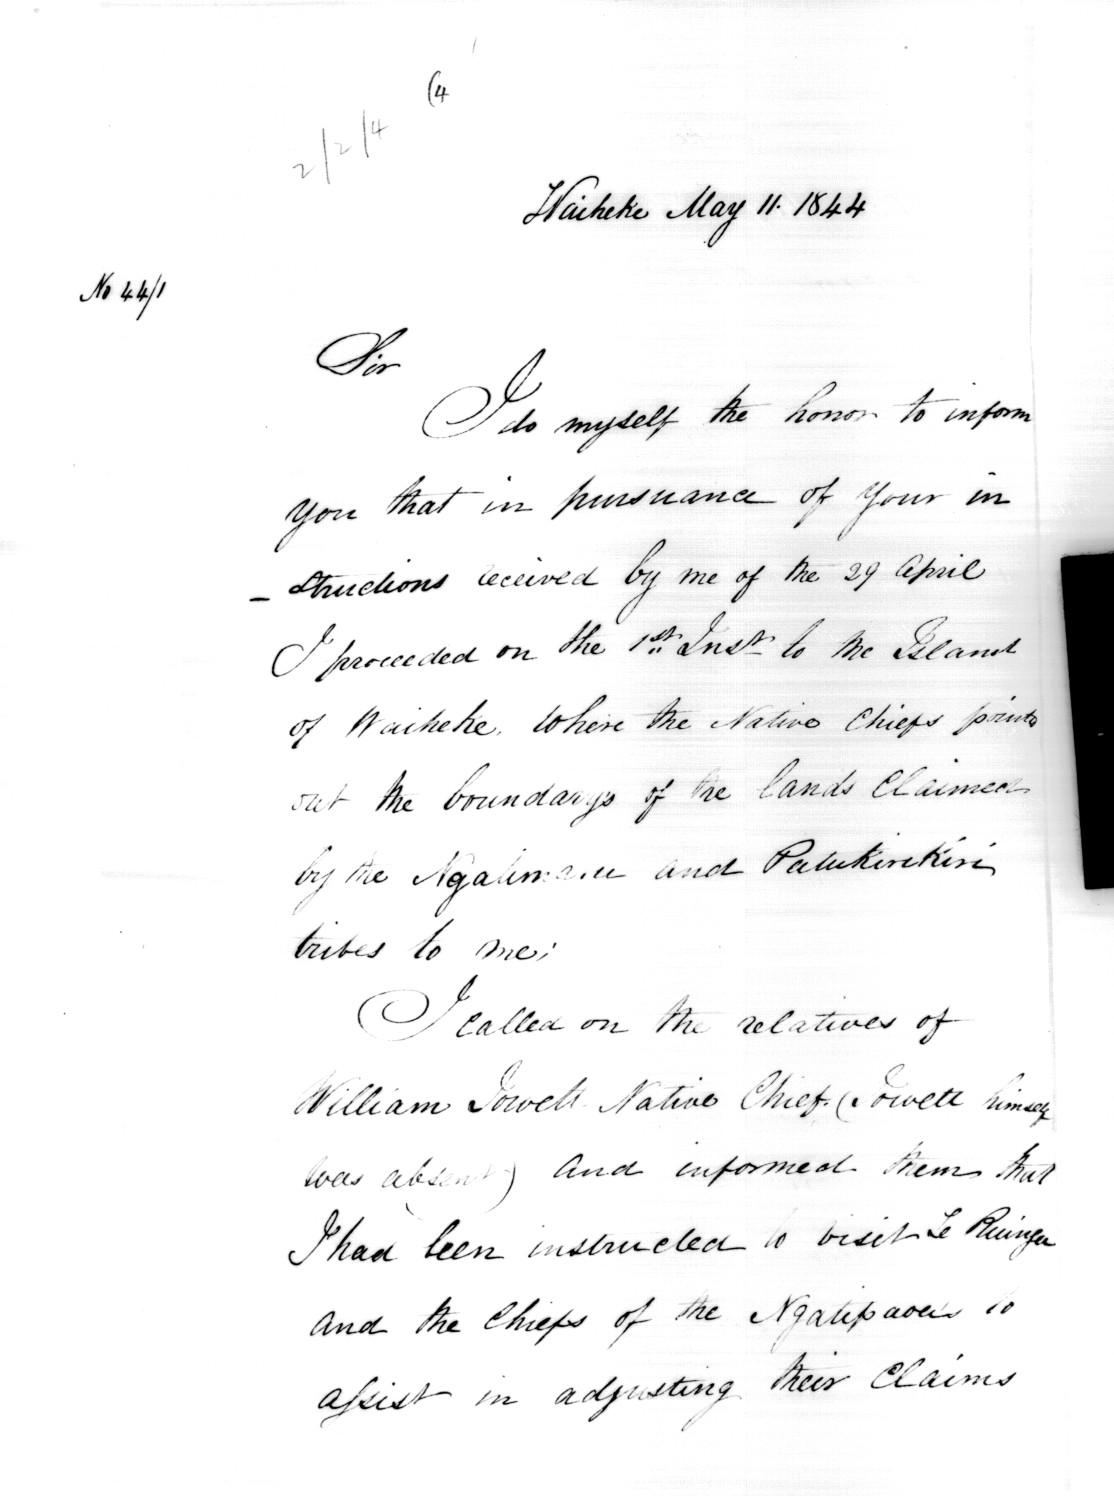 (4
2/2/4
Waiheke May 11. 1844
No 44/1
Sir
I do myself the honor to inform
you that in pursuance of your in
- structions received by me of the 29 April
I proceeded on the 1st Inst to the Island
of Waiheke, where the Native Chiefs points
out the boundarys of the lands Claimed
by the and Patukirikiri
tribes to me;
I called on the relatives of
William Jowett Native Chief. (Jowett himself
was absent) and informed them that
I had been instructed to visit Te Ruinga
and the Chiefs of the Ngatipaoa's to
assist in adjusting their Claims